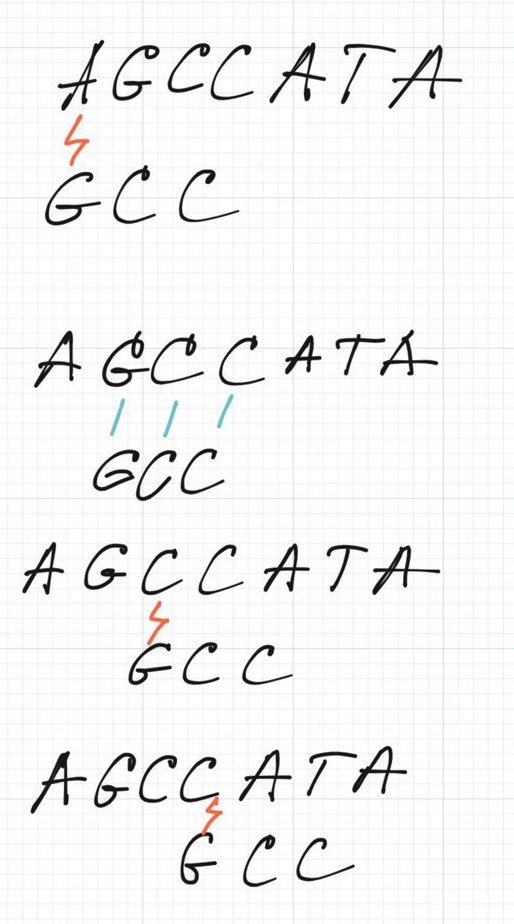 AGCCATA
GCC
AGCCATA
GCC
AGCCATA
GCC
AGCCATA
GCC